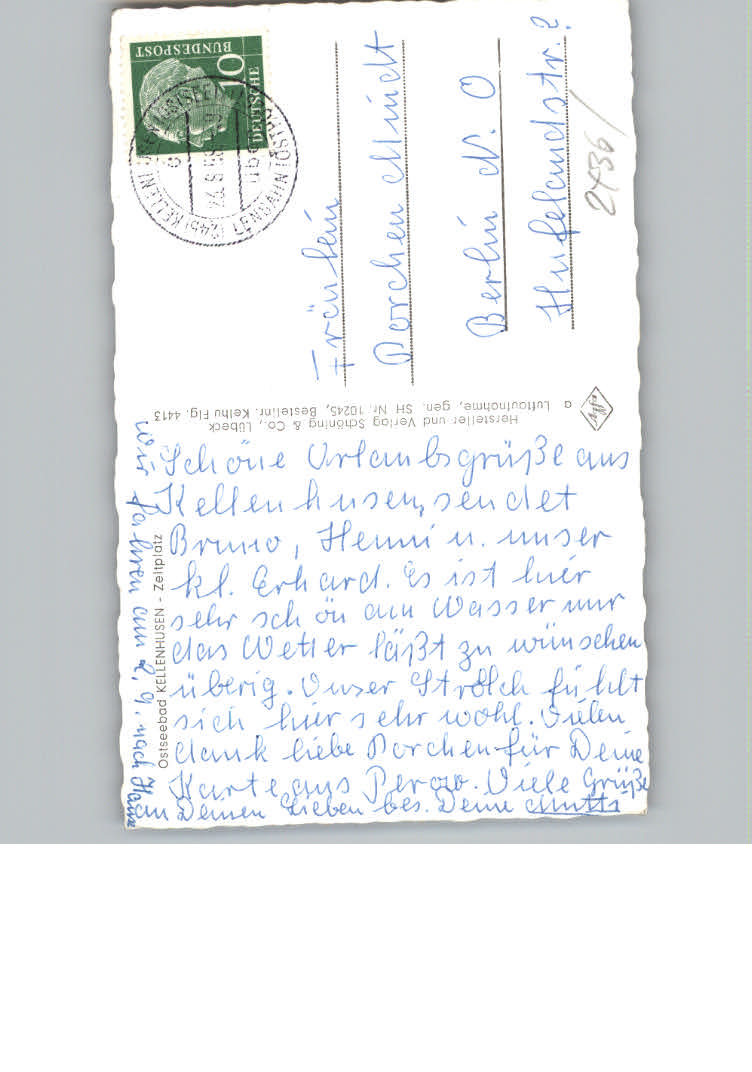 Schöne Urlaubsgrüße aus
Kellenhusen, sendet
Bruno, Henni u. unser
kl. Erhard. Es ist hier
sehr schön am Wasser nur
das Wetter läßt zu wünschen
überig. Unser Strolch fühlt
sich hier sehr wohl. Vielen
dank liebe Dorchen für Deine
Karte aus . Viele Grüße
an Deinen Lieben bes. Deine Mutti
wir fahren am 2. 9. nach
Ostseebad KELLENHUSEN - Zeltplatz
Hersteller und Verlag Schöning & Co., Lübeck
a Luftaufnahme, gen. SH Nr. 10245, Bestellnr. Kelhu Flg. 4413
Fräulein
Dorchen
Berlin N. O
Hufelandstr. ?
2436/
DEUTSCHE
BUNDESPOST
10
KELLENHUSEN
ÜBER LENSAHN